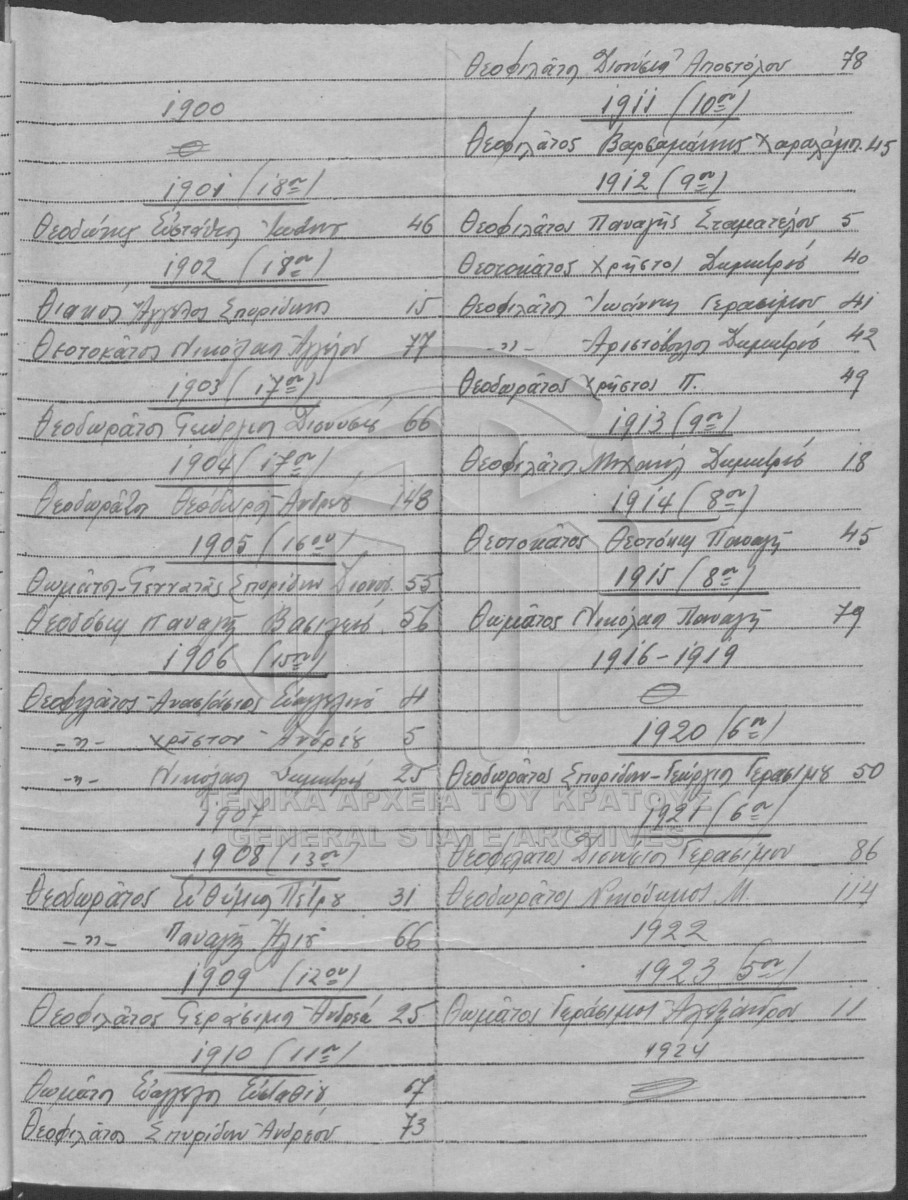 1900
1901 (18ον)
Θεοδώσης Εὐστάθιος Ἰωάννη 46
1902 (18ον)
Θιακὸς Ἄγγελος Σπυρίδωνος 15
Θεοτοκάτος Νικόλαος Ἀγγέλου 77
1903 (17ον)
Θεοδωράτος Γεώργιος Διονυσίου 66
1904 (17ον)
Θεοδωράτος Θεόδωρος Ἀνδρέου 148
1905 (16ον)
Θωμάτος-Γεννατᾶς Σπυρίδων Διονυσ. 55
Θεοδόσης Παναγῆς Βασιλείου 56
1906 (15ον)
Θεοφιλάτος Ἀναστάσιος Εὐαγγελινοῦ 4
-〃- Χρῆστος Ἀνδρέου 5
-〃- Νικόλαος Δημητρίου 25
1907
1908 (13ον)
Θεοδωράτος Εὐθύμιος Πέτρου 31
-〃- Παναγῆς Ἠλιοῦ 66
1909 (12ον)
Θεοφιλάτος Γεράσιμος Ἀνδρέα 25
1910 (11ον)
Θωμάτος Εὐάγγελος Εὐσταθίου 67
Θεοφιλάτος Σπυρίδων Ἀνδρέου 73
Θεοφιλάτος Διονύσιος Ἀποστόλου 78
1911 (10ον)
Θεοφιλάτος Βαρσαμάκης Χαραλάμπ. 45
1912 (9ον)
Θεοφιλάτος Παναγῆς Σταματέλου 5
Θεοτοκάτος Χρῆστος Δημητρίου 40
Θεοφιλάτος Ἰωάννης Γερασίμου 41
-〃- Ἀριστόβουλος Δημητρίου 42
Θεοδωράτος Χρῆστος Π. 49
1913 (9ον)
Θεοφιλάτος Μιχαήλ Δημητρίου 18
1914 (8ον)
Θεοτοκάτος Θεοτόκης Παναγῆ 45
1915 (8ον)
Θωμάτος Νικόλαος Παναγῆ 79
1916-1919
1920 (6ον)
Θεοδωράτος Σπυρίδων-Γεώργιος Γερασίμου 50
1921 (6ον)
Θεοφιλάτος Διονύσιος Γερασίμου 86
Θεοδωράτος Νικόδημος Μ. 114
1922
1923 (5ον)
Θωμάτος Γεράσιμος Ἀλεξάνδρου 11
1924
ΓΕΝΙΚΑ ΑΡΧΕΙΑ ΤΟΥ ΚΡΑΤΟΥΣ
GENERAL STATE ARCHIVES